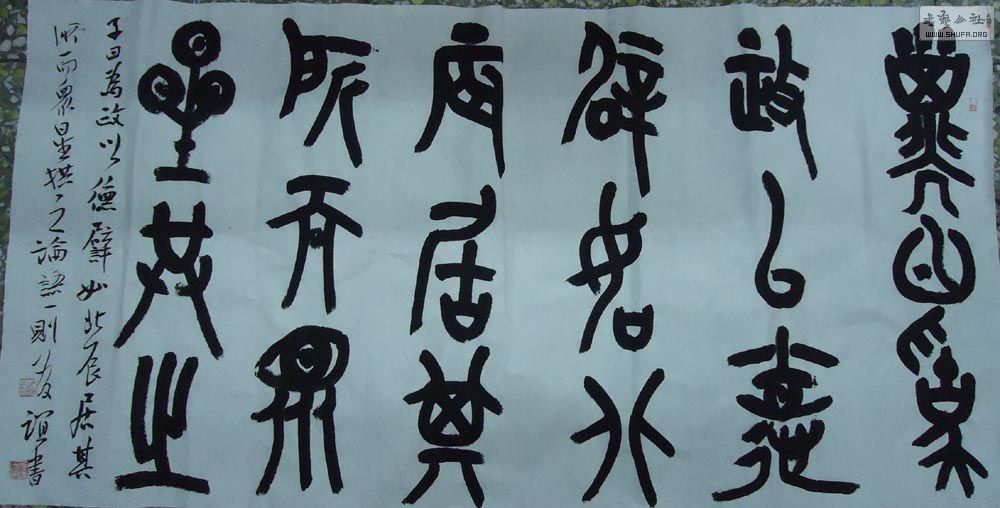 子曰為
政以德
辟如北
辰居其
所而眾
星共之
子曰為政以德譬如北辰居其
所而眾星拱之論語一則誼書
書藝公社
WWW.SHUFA.ORG